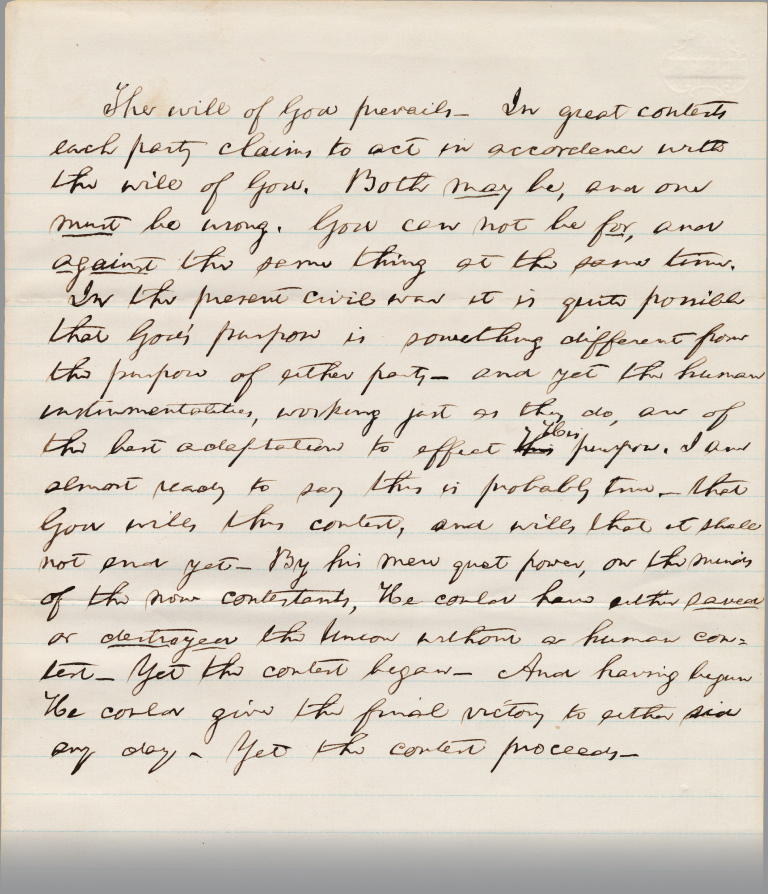 The will of God prevails— In great contests
each party claims to act in accordance with
the will of God. Both may be, and one
must be wrong. God can not be for, and
against the same thing at the same time.
In the present civil war it is quite possible
that God's purpose is something different from
the purpose of either party— and yet the human
instrumentalities, working just as they do, are of
the best adaptation to effect His purpose. I am
almost ready to say this is probably true— that
God wills this contest, and wills that it shall
not end yet— By his mere quiet power, on the minds
of the now contestants, He could have either saved
or destroyed the Union without a human con=
test— Yet the contest began— And having begun
He could give the final victory to either side
any day— Yet the contest proceeds—